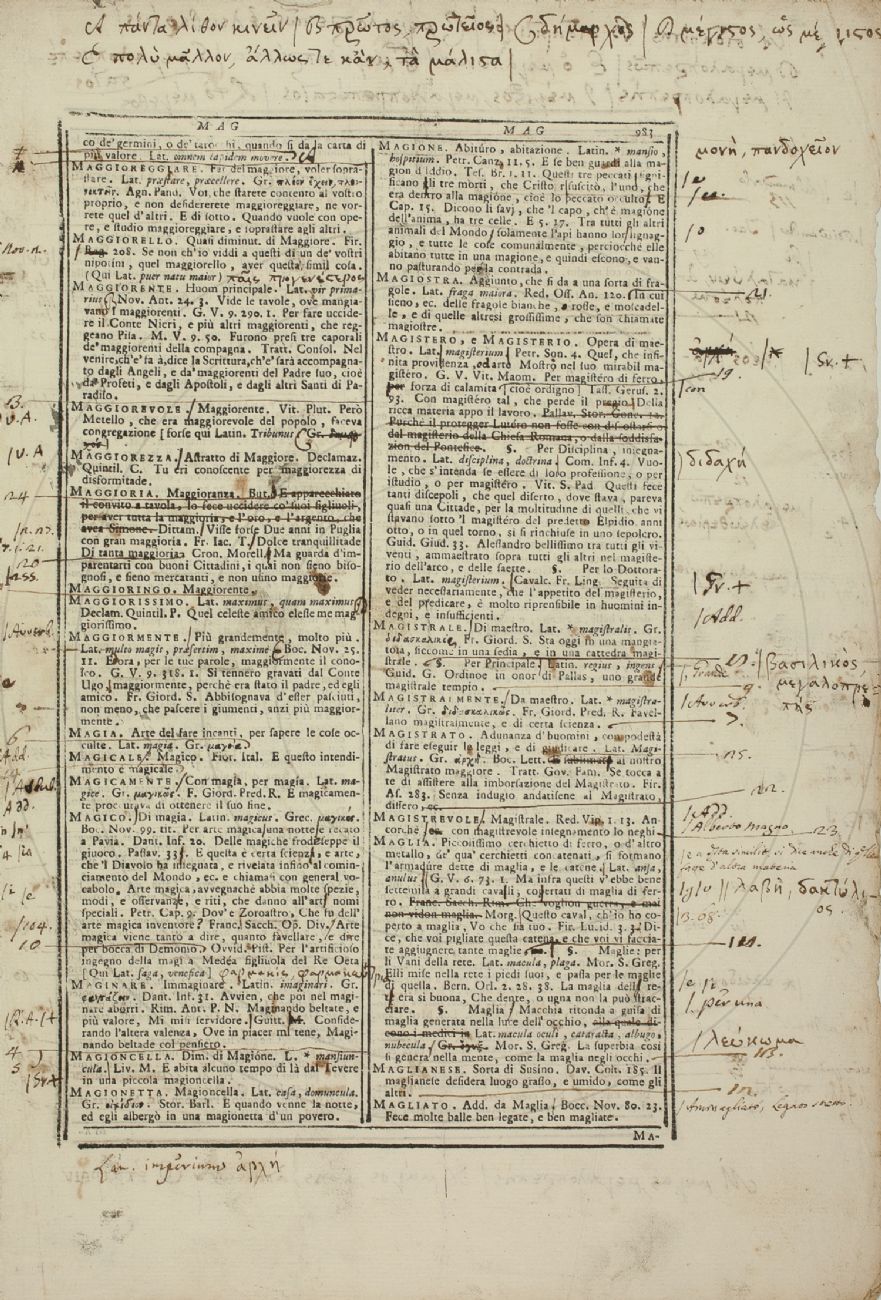 A πάντα λίθον κινεῖν | B πρῶτος, πρωτεῖος | C δήμαρχος | D μέγιστος, ὡς μέγιστος
E πολὺ μᾶλλον, ἄλλως τε κἂν, τὰ μάλιστα |
MAG
MAG 983
co de' germini, o de' tarocchi, quando si da la carta di
più valore. Lat. omnem lapidem movere.
MAGGIOREGGIARE. Far del maggiore, voler sopra-
stare. Lat. præstare, præcellere. Gr.
Ago. Pand. Voi che starete contento al vostro
proprio, e non desidererete maggioreggiare, ne vor-
rete quel d'altri. E di sotto. Quando vuole con ope-
re, e studio maggioreggiare, e soprastare agli altri.
MAGGIORELLO. Quasi diminut. di Maggiore. Fir.
208. Se non ch'io viddi a questi dì un de' vostri
nipotini, quel maggiorello, aver questa simil cosa.
(Qui Lat. puer natu maior) παῖς προγενέστερος
MAGGIORENTE. Huom principale. Lat. vir prima-
rius Nov. Ant. 24. 3. Vide le tavole, ove mangia-
vano i maggiorenti. G. V. 9. 290. 1. Per fare uccide-
re il Conte Nieri, e più altri maggiorenti, che reg-
geano Pisa. M. V. 9. 50. Furono presi tre caporali
de' maggiorenti della compagna. Tratt. Consol. Nel
venire, ch'e' fa à, dice la Scrittura, ch'e' sarà accompagna-
to dagli Angeli, e da' maggiorenti del Padre suo, cioè
da' Profeti, e dagli Apostoli, e dagli altri Santi di Pa-
radiso.
MAGGIOREVOLE. Maggiorente. Vit. Plut. Però
Metello, che era maggiorevole del popolo, faceva
congregazione [forse qui Latin. Tribunus
MAGGIOREZZA. Astratto di Maggiore. Declamaz.
Quintil. C. Tu eri conoscente per maggiorezza di
disformitade.
MAGGIORIA. Maggioranza. But. E apparecchiato
il convito a tavola, lo fece uccidere co' suoi figliuoli,
per aver tutta la maggioria, e l'oro, e l'argento, che
avea Simone. Dittam. Visse forse Due anni in Puglia
con gran maggioria. Fr. Iac. T. Dolce tranquillitade
Di tanta maggioria. Cron. Morell. Ma guarda d'im-
parentarti con buoni Cittadini, i quai non sieno biso-
gnosi, e sieno mercatanti, e non usino maggioria.
MAGGIORINGO. Maggiorente.
MAGGIORISSIMO. Lat. maximus, quam maximus
Declam. Quintil. P. Quel celeste amico elesse me mag-
giorissimo.
MAGGIORMENTE. Più grandemente, molto più.
Lat. multo magis, præsertim, maxime Boc. Nov. 25.
11. Ebora, per le tue parole, maggiormente il cono-
sco. G. V. 9. 318. 1. Si tennero gravati dal Conte
Ugo, maggiormente, perchè era stato il padre, ed egli
amico. Fr. Giord. S. Abbisognava d'esser pasciuti,
non meno, che pascere i giumenti, anzi più maggior-
mente.
MAGIA. Arte del fare incanti, per sapere le cose oc-
culte. Lat. magia. Gr. μαγεία
MAGICALE. Magico. Fior. Ital. E questo intendi-
mento è magicale
MAGICAMENTE. Con magia, per magia. Lat. ma-
gice. Gr. μαγικῶς. F. Giord. Pred. R. E magicamen-
te procurava di ottenere il suo fine.
MAGICO. Di magia. Latin. magicus. Grec. μαγικός.
Boc. Nov. 99. tit. Per arte magica, una notte è recato
a Pavia. Dant. Inf. 20. Delle magiche frode seppe il
giuoco. Passav. 335. E questa è certa scienzia, e arte,
che 'l Diavolo ha insegnata, e rivelata insino al comin-
ciamento del Mondo, ec. e chiamasi con general vo-
cabolo, Arte magica, avvegnachè abbia molte spezie,
modi, e osservanze, e riti, che danno all'arte nomi
speciali. Petr. Cap. 9. Dov'è Zoroastro, Che fu dell'
arte magica inventore? Franc. Sacch. Op. Div. Arte
magica viene tanto a dire, quanto favellare, se dire
per bocca di Demonio. Ovvid. Pist. Per l'artifizioso
ingegno della magica Medea figliuola del Re Oeta
[Qui Lat. saga, venefica]
MAGINARE. Immaginare. Latin. imaginari. Gr.
Dant. Inf. 31. Avvien, che poi nel magi-
nare aborri. Rim. Ant. P. N. Maginando beltate, e
più valore, Mi misi servidore. Guitt. M. Conside-
rando l'altera valenza, Ove in piacer mi tene, Magi-
nando beltade col pensiero.
MAGIONCELLA. Dim. di Magióne. L. * mansiun-
cula. Liv. M. E abita alcuno tempo di là dal Tevere
in una piccola magioncella.
MAGIONETTA. Magioncella. Lat. casa, domuncula.
Gr. οἰκίδιον. Stor. Barl. E quando venne la notte,
ed egli albergò in una magionetta d'un povero.
Lat. imperium ἀρχή
MAGIONE. Abituro, abitazione. Latin. * mansio,
hospitium. Petr. Canz. 11. 5. E se ben guardi alla ma-
gion d'Iddio. Tes. Br. 1. 11. Questi tre peccati signi-
ficano gli tre morti, che Cristo risuscitò, l'uno, che
era dentro alla magióne, cioè lo peccato occulto. E
Cap. 15. Dicono li savj, che 'l capo, ch'è magióne
dell'anima, ha tre celle. E 5. 27. Tra tutti gli altri
animali del Mondo solamente Papi hanno lor lignag-
gio, e tutte le cose comunalmente, perciocchè elle
abitano tutte in una magione, e quindi escono, e van-
no pasturando per la contrada.
MAGIOSTRA. Aggiunto, che si da a una sorta di fra-
gole. Lat. fraga maiora. Red. Oss. An. 120. In cui
sieno, ec. delle fragole bianche, e rosse, e moscadel-
le, e di quelle altresì grossissime, che son chiamate
magiostre.
MAGISTERO, e MAGISTERIO. Opera di mae-
stro. Lat. magisterium Petr. Son. 4. Quel, che infi-
nita providenza, ed arte Mostrò nel suo mirabil ma-
gistéro. G. V. Vit. Maom. Per magistéro di ferro,
per forza di calamita [cioè ordigno] Tass. Gerus. 2.
93. Con magistéro tal, che perde il pregio Della
ricca materia appo il lavoro. Pallav. Stor. Conc. 12.
Purchè il protegger Lutero non fosse con discostarsi
dal magisterio della Chiesa Romana, o dalla soddisfa-
zion del Pontefice. §. Per Disciplina, insegna-
mento. Lat. disciplina, doctrina. Com. Inf. 4. Vuo-
le, che s'intenda se essere di loro professione, o per
istudio, o per magistéro. Vit. S. Pad. Questi fece
tanti discepoli, che quel diserto, dove stava, pareva
quasi una Cittade, per la moltitudine di quelli, che vi
stavano sotto 'l magistéro del predetto Elpidio anni
otto, o in quel torno, sì si rinchiuse in uno sepolcro.
Guid. Giud. 33. Alessandro bellissimo tra tutti gli vi-
venti, ammaestrato sopra tutti gli altri nel magiste-
rio dell'arco, e delle saette. §. Per lo Dottora-
to. Lat. magisterium. Cavalc. Fr. Ling. Seguita di
veder necessariamente, che l'appetito del magisterio,
e del predicare, è molto riprensibile in huomini in-
degni, e insufficienti.
MAGISTRALE. Di maestro. Lat. * magistralis. Gr.
διδασκαλικός. Fr. Giord. S. Sta oggi in una mangia-
toia, siccome in una sedia, e in una cattedra magi-
strale. §. Per Principale. Latin. regius, ingens
Guid. G. Ordinoe in onor di Pallas, uno grande
magistrale tempio.
MAGISTRALMENTE. Da maestro. Lat. * magistra-
liter. Gr. διδασκαλικῶς. Fr. Giord. Pred. R. Favel-
lano magistralmente, e di certa scienza.
MAGISTRATO. Adunanza d'huomini, con podestà
di fare eseguir le leggi, e di giudicare. Lat. Magi-
stratus. Gr. ἀρχή. Boc. Lett. Co sublimato al nostro
Magistrato maggiore. Tratt. Gov. Fam. Se tocca a
te di assistere alla imborsazione del Magistrato. Fir.
As. 283. Senza indugio andatisene al Magistrato,
dissero, ec.
MAGISTREVOLE. Magistrale. Red. Vip. 1. 13. An-
corchè con magistrevole insegnamento lo neghi
MAGLIA. Piccolissimo cerchietto di ferro, o d'altro
metallo, de' qua' cerchietti concatenati, si formano
l'armadure dette di maglia, e le catene. Lat. ansa,
anulus G. V. 6. 73. 1. Ma infra questi v'ebbe bene
settemila a grandi cavalli, covertati di maglia di fer-
ro. Franc. Sacch. Rim. Chi voglion guerra, e mai
non vidon maglia. Morg. Questo caval, ch'io ho co-
perto a maglia, Vo che sia tuo. Fir. Lucid. 3. 3. Di-
ce, che voi pigliate questa catena, e che voi vi faccia-
te aggiugnere tante maglie §. Maglie: per
li Vani della rete. Lat. macula, plaga. Mor. S. Greg.
Elli mise nella rete i piedi suoi, e passa per le maglie
di quella. Bern. Orl. 2. 28. 38. La maglia della re-
te era si buona, Che dente, o ugna non la può strac-
ciare. §. Maglia Macchia ritonda a guisa di
maglia generata nella luce dell'occhio, alla quale di-
cono i medici in Lat. macula oculi, cataratta, albugo,
nubecula Mor. S. Greg. La superbia così
si genera nella mente, come la maglia negli occhi.
MAGLIANESE. Sorta di Susino. Dav. Colt. 185. Il
maglianese desidera luogo grasso, e umido, come gli
altri.
MAGLIATO. Add. da Maglia. Bocc. Nov. 80. 23.
Fece molte balle ben legate, e ben magliate.
MA-
μονὴ, πανδοχεῖον
21.
19.
con
) διδαχή
| Gr. +
| Add.
| βασιλικὸς,
μεγαλοπρε-
πής
| Add.
| Alberto Magno.
23
|| λαβὴ, δακτύλι-
ος.
| per una
| λεύκωμα
| Ammagliato, Legno
13.
V. A.
| V. A
24
120
10
4
5